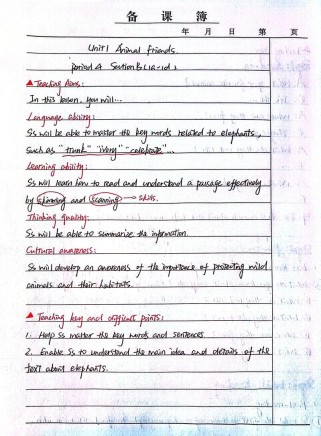 备课簿
年 月 日 第 页
Unit 1 Animal friends.
Period 4 Section B (1a-1d)
▲ Teaching Aims:
In this lesson, you will...
Language ability:
Ss will be able to master the key words related to elephants,
such as "trunk" "ivory" "celebrate"...
Learning ability:
Ss will learn how to read and understand a passage effectively
by skimming and scanning → skills.
Thinking quality:
Ss will be able to summarize the information.
Cultural awareness:
Ss will develop an awareness of the importance of protecting wild
animals and their habitats.
▲ Teaching key and difficult points:
1. Help Ss master the key words and sentences.
2. Enable Ss to understand the main idea and details of the
text about elephants.